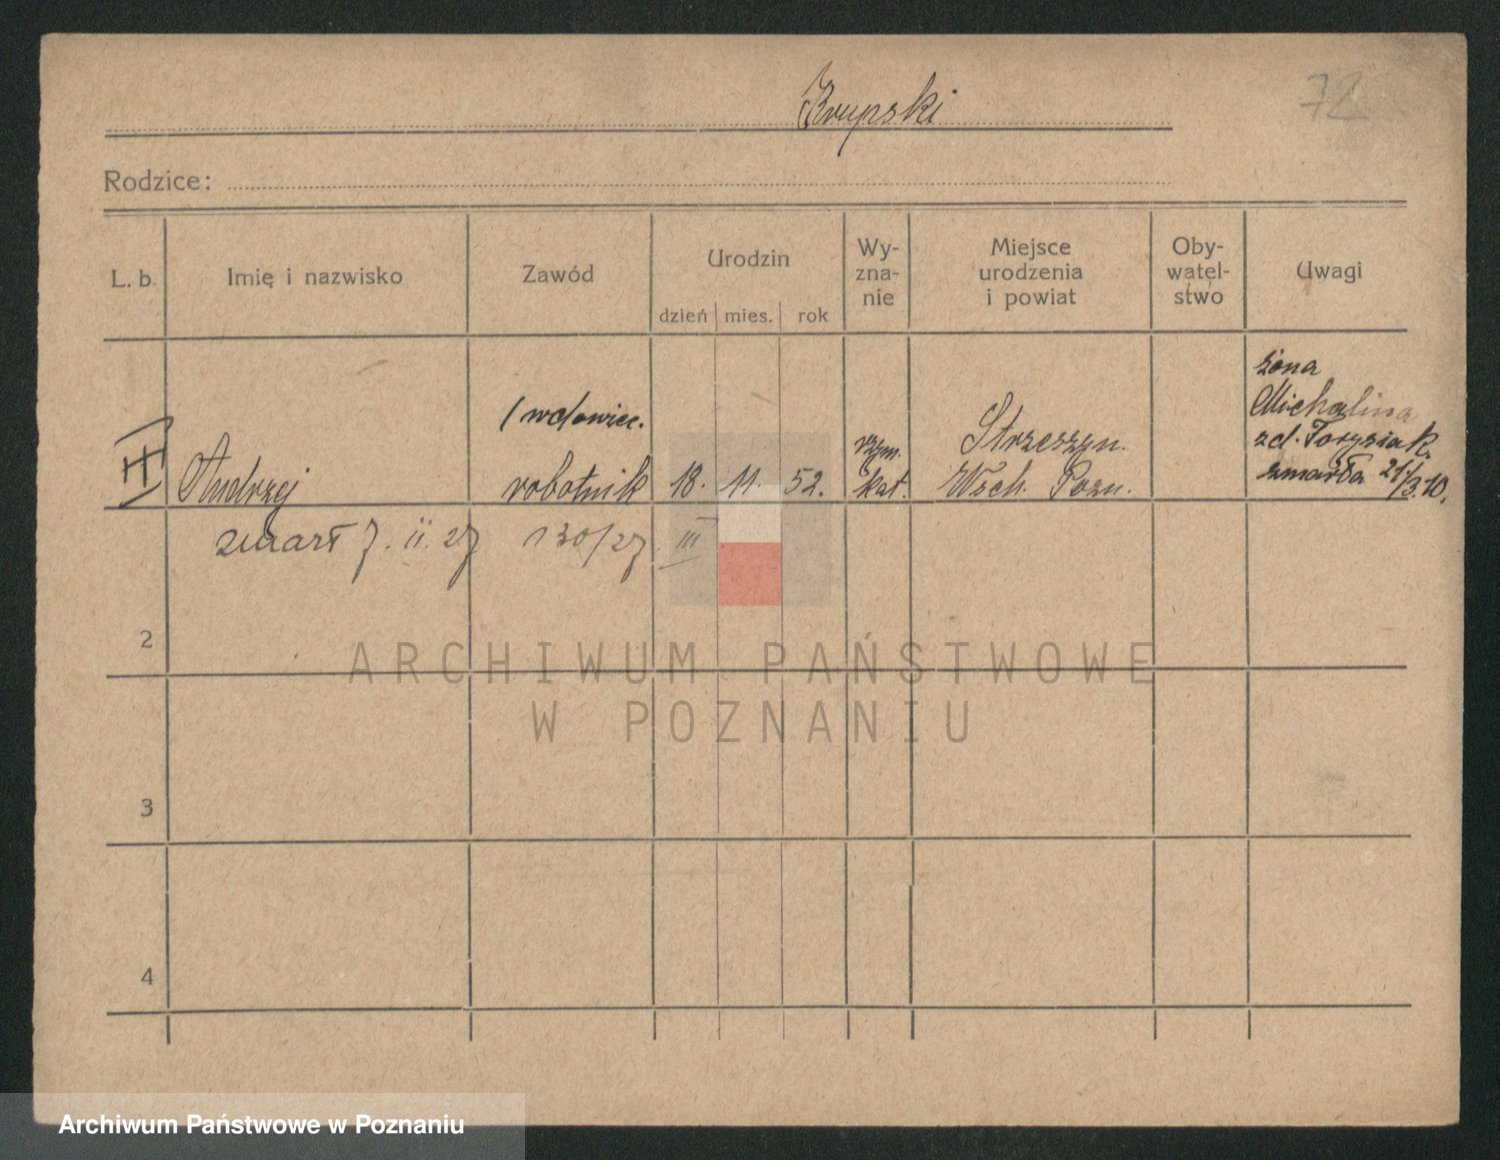 Krupski
72
Rodzice:
L. b.
Imię i nazwisko
Zawód
Urodzin
dzień mies. rok
Wy-
zna-
nie
Miejsce
urodzenia
i powiat
Oby-
watel-
stwo
Uwagi
żona
Michalina
zd.
zmarła 21/3.10.
/ wdowiec.
Andrzej
robotnik
18. 11. 52.
rzym.
kat.
Strzeszyn.
Wsch. Pozn.
zmarł 7. II. 27 130/27 III
2
3
4
ARCHIWUM PAŃSTWOWE
W POZNANIU
Archiwum Państwowe w Poznaniu